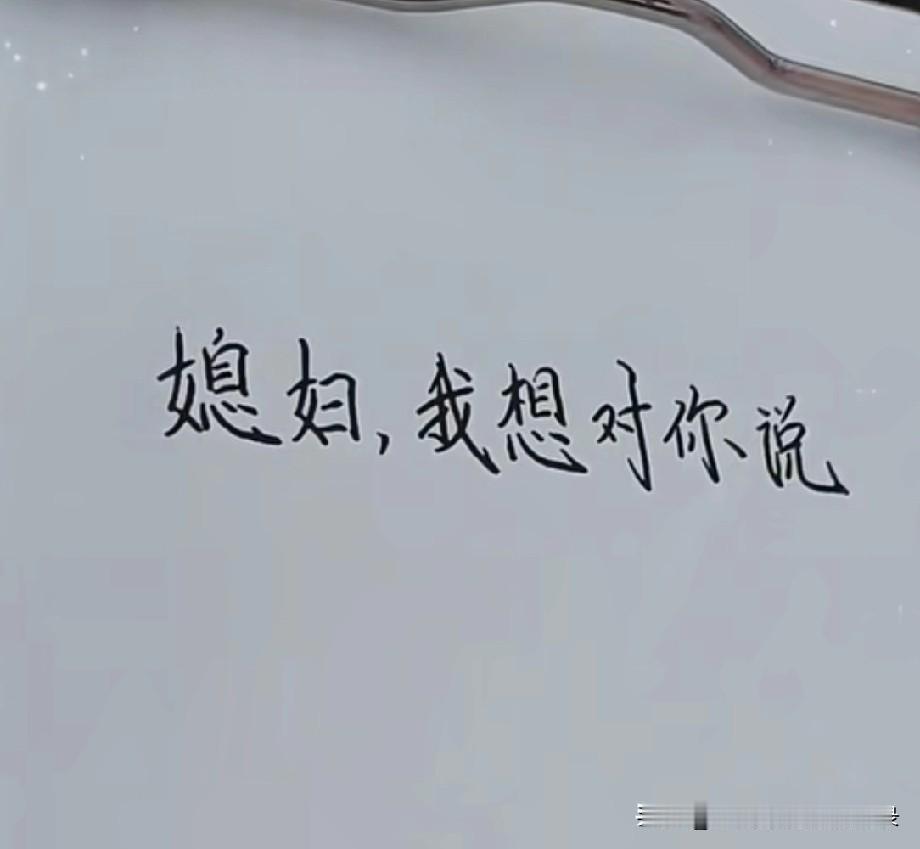 媳妇,我想对你说